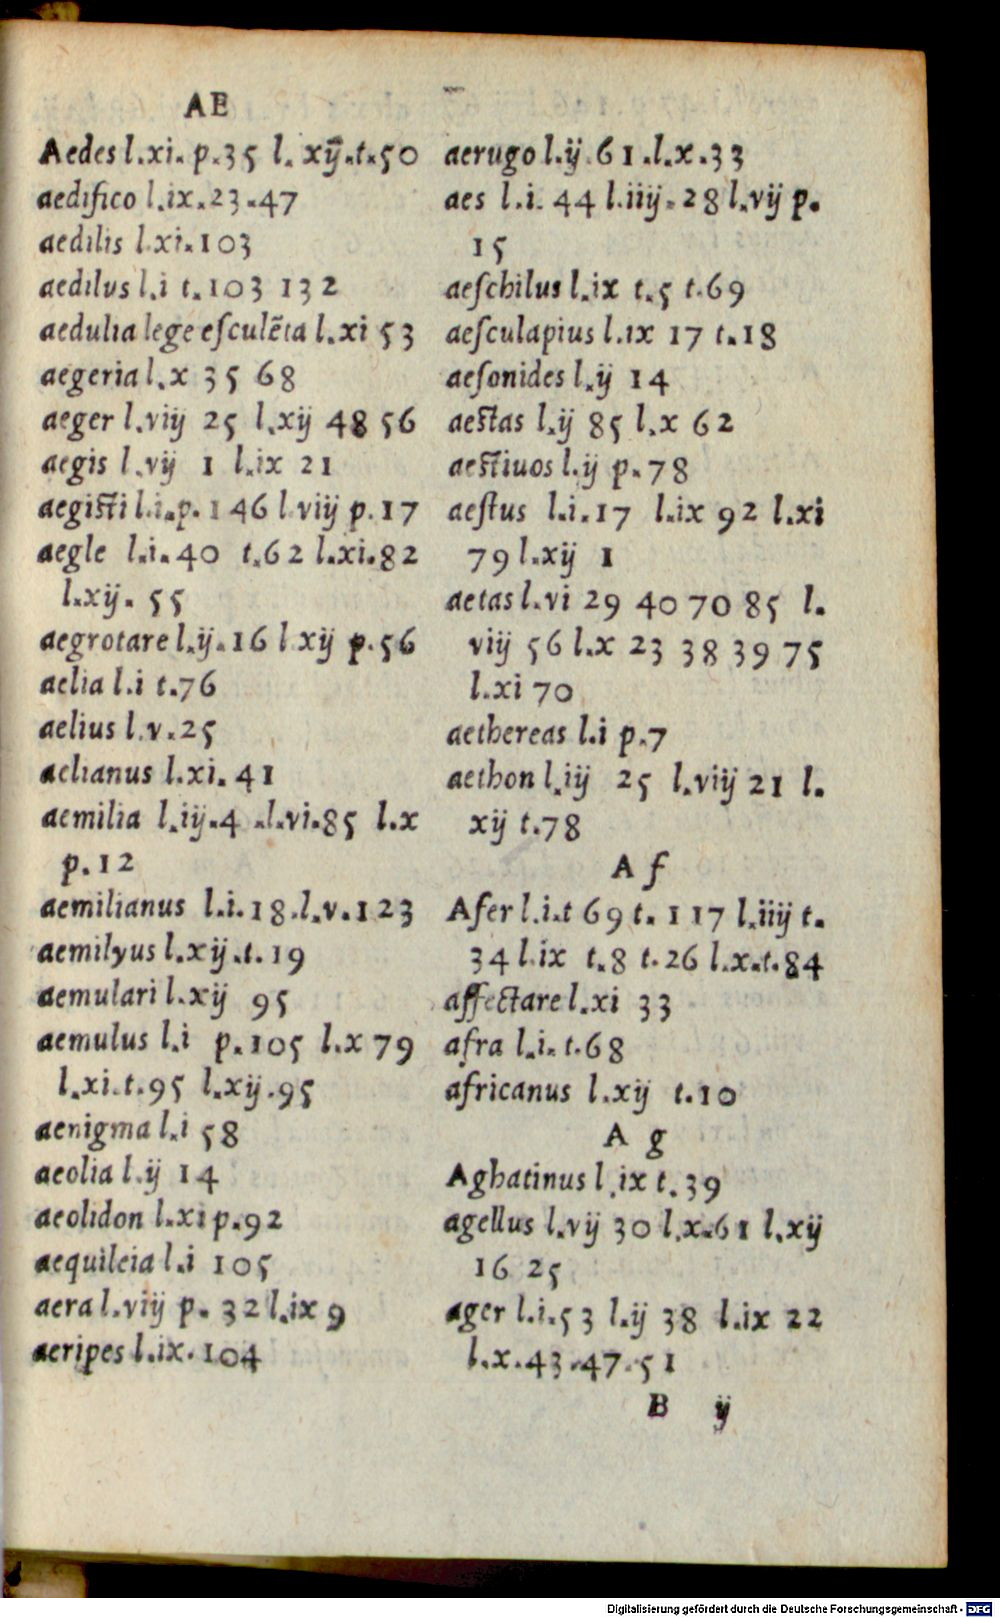 AE
Aedes l.xi. p.35 l. xij.t.50
aedifico l.ix.23.47
aedilis l.xi.103
aedilus l.i t.103 132
aedulia lege eſculẽta l.xi 53
aegeria l.x 35 68
aeger l.viij 25 l.xij 48 56
aegis l.vij 1 l.ix 21
aegisti l.i.p.146 l.viij p.17
aegle l.i.40 t.62 l.xi.82
l.xij. 55
aegrotare l.ij.16 l.xij p.56
aelia l.i t.76
aelius l.v.25
aelianus l.xi. 41
aemilia l.iij.4 .l.vi.85 l.x
p.12
aemilianus l.i.18.l.v.123
aemilyus l.xij.t.19
aemulari l.xij 95
aemulus l.i p.105 l.x 79
l.xi.t.95 l.xij.95
aenigma l.i 58
aeolia l.ij 14
aeolidon l.xi p.92
aequileia l.i 105
aera l.viij p. 32 l.ix 9
aeripes l.ix.104
aerugo l.ij.61.l.x.33
aes l.i. 44 l.iiij.28 l.vij p.
15
aeſchilus l.ix t.5 t.69
aeſculapius l.ix 17 t.18
aeſonides l.ij 14
aestas l.ij 85 l.x 62
aestiuos l.ij p.78
aeſtus l.i.17 l.ix 92 l.xi
79 l.xij 1
aetas l.vi 29 40 70 85 l.
viij 56 l.x 23 38 39 75
l.xi 70
aethereas l.i p.7
aethon l.iij 25 l.viij 21 l.
xij t.78
A f
Afer l.i.t 69 t. 117 l.iiij t.
34 l.ix t.8 t.26 l.x.t.84
affectare l.xi 33
afra l.i.t.68
africanus l.xij t.10
A g
Aghatinus l.ix t.39
agellus l.vij 30 l.x.61 l.xij
16 25
ager l.i.53 l.ij 38 l.ix 22
l.x.43.47.51
B ij
Digitalisierung gefördert durch die Deutsche Forschungsgemeinschaft - DFG